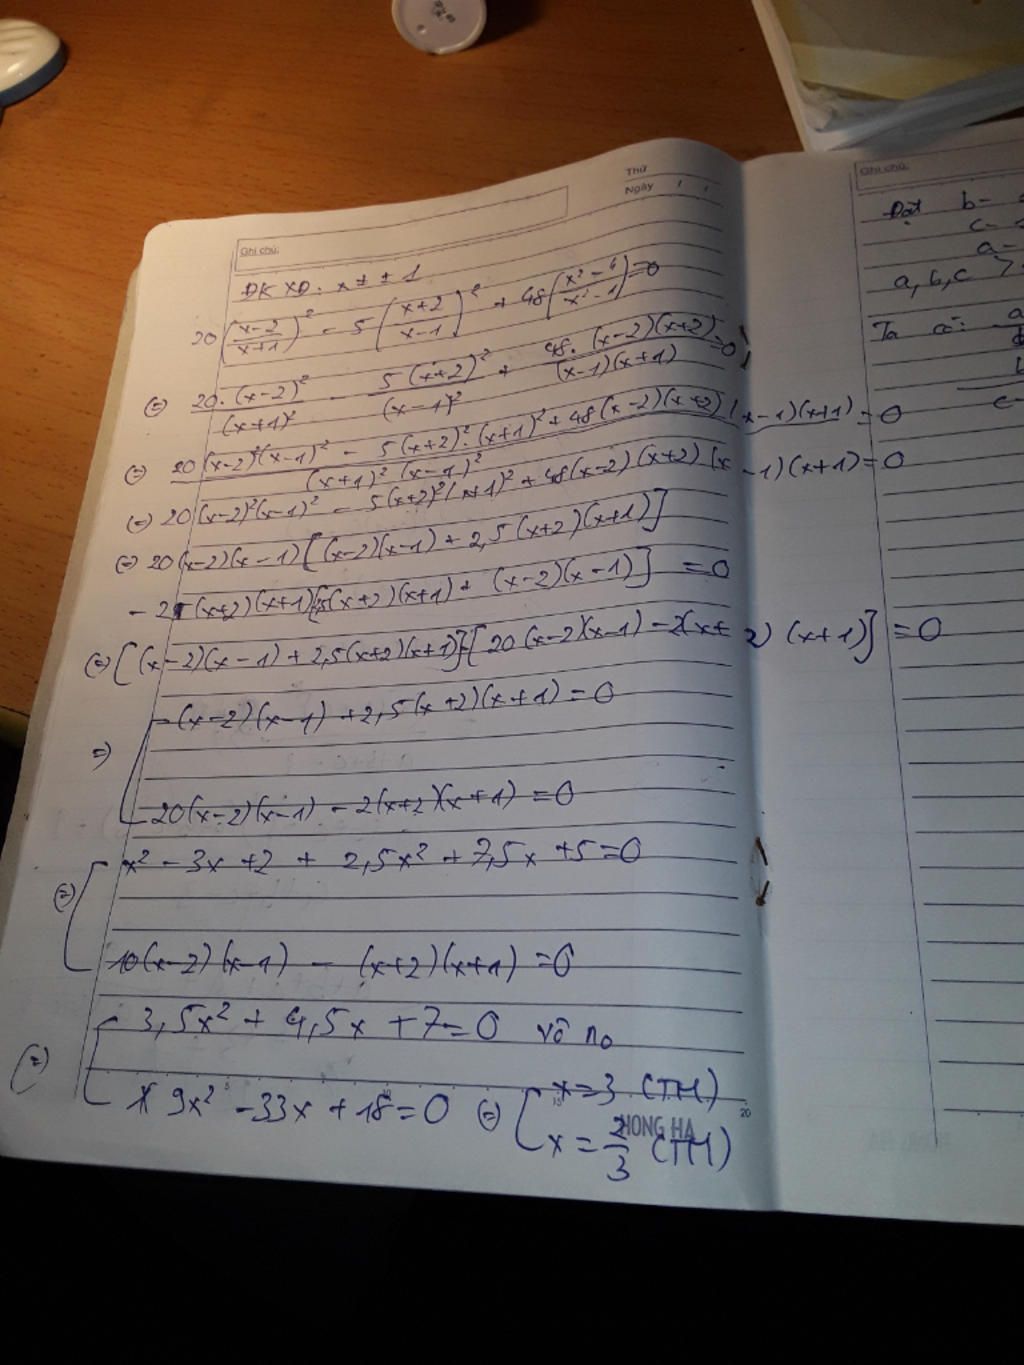 Thứ
Ngày / /
Ghi chú:
ĐKXĐ: x ≠ ± 1
20(x-2/x+1)² - 5(x+2/x-1)² + 48(x²-4/x²-1)=0
(=) 20.(x-2)²/(x+1)² - 5(x+2)²/(x-1)² + 48.(x-2)(x+2)/(x-1)(x+1) =0
(=) 20(x-2)²(x-1)² - 5(x+2)².(x+1)² + 48(x-2)(x+2)(x-1)(x+1)/(x+1)²(x-1)² = 0
(=) 20(x-2)²(x-1)² - 5(x+2)²(x+1)² + 48(x-2)(x+2)(x-1)(x+1)=0
(=) 20(x-2)(x-1)[(x-2)(x-1)+2,5(x+2)(x+1)]
- 2(x+2)(x+1)[2,5(x+2)(x+1)+ (x-2)(x-1)] =0
(=) [(x-2)(x-1)+2,5(x+2)(x+1)].[20(x-2)(x-1)-2(x+2)(x+1)]=0
=) [ (x-2)(x-1)+2,5(x+2)(x+1)=0
20(x-2)(x-1) - 2(x+2)(x+1) =0
(=) [ x² - 3x +2 + 2,5x² +7,5x +5=0
10(x-2)(x-1) - (x+2)(x+1) =0
(=) [ 3,5x² + 4,5x +7=0 vô no
9x² -33x +18=0 (=) [ x=3 (TM)
x = 2/3 (TM)
HONG HA
20
Ghi chú:
Đặt b-
c-
a-
a, b, c >
Ta có: a
b
c-